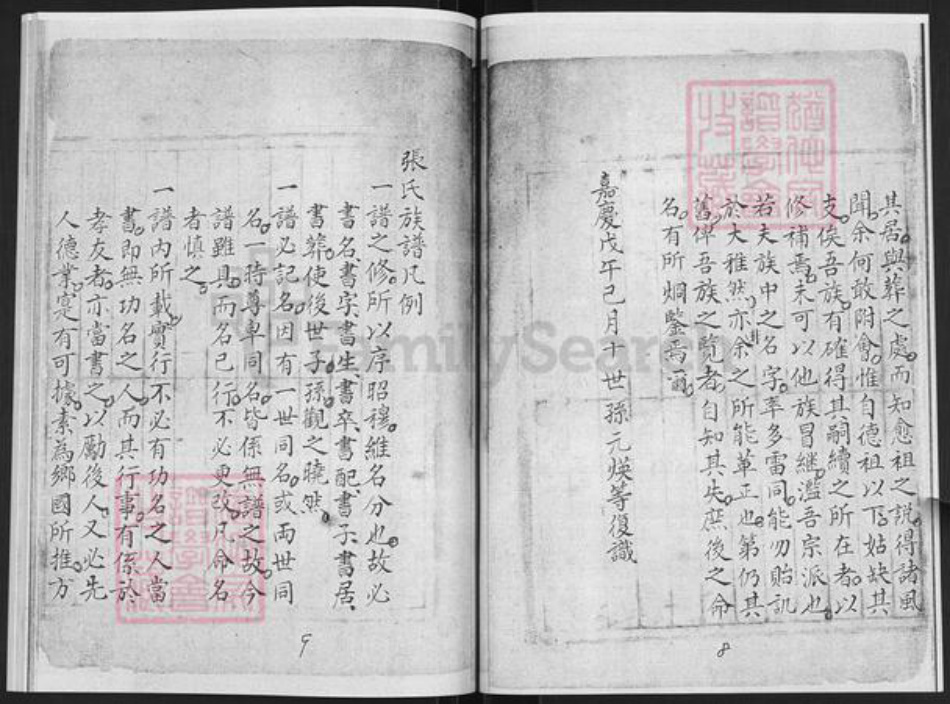 其居與葬之處而知愈祖之說得諸風
聞余何敢附會惟自德祖以下姑缺其
支俟吾族有確得其嗣續之所在者以
修補焉未可以他族冒繼濫吾宗派也
若夫族中之名字率多雷同能勿貽譏
於大雅然亦非余之所能革正也第仍其
舊俾吾族之覽者自知其失庶後之命
名有所烱鑒焉爾
嘉慶戊午巳月十世孫元煐等復識
8
張氏族譜凡例
一譜之修所以序昭穆維名分也故必
書名書字書生書卒書配書子書居
書葬使後世子孫觀之曉然
一譜必記名因有一世同名或兩世同
名一時尊卑同名皆係無譜之故今
譜雖具而名已行不必更改凡命名
者慎之
一譜內所載實行不必有功名之人當
書即無功名之人而其行事有係於
孝友者亦當書之以勵後人又必先
人德業寔有可據素為鄉國所推方
9
FamilySearch